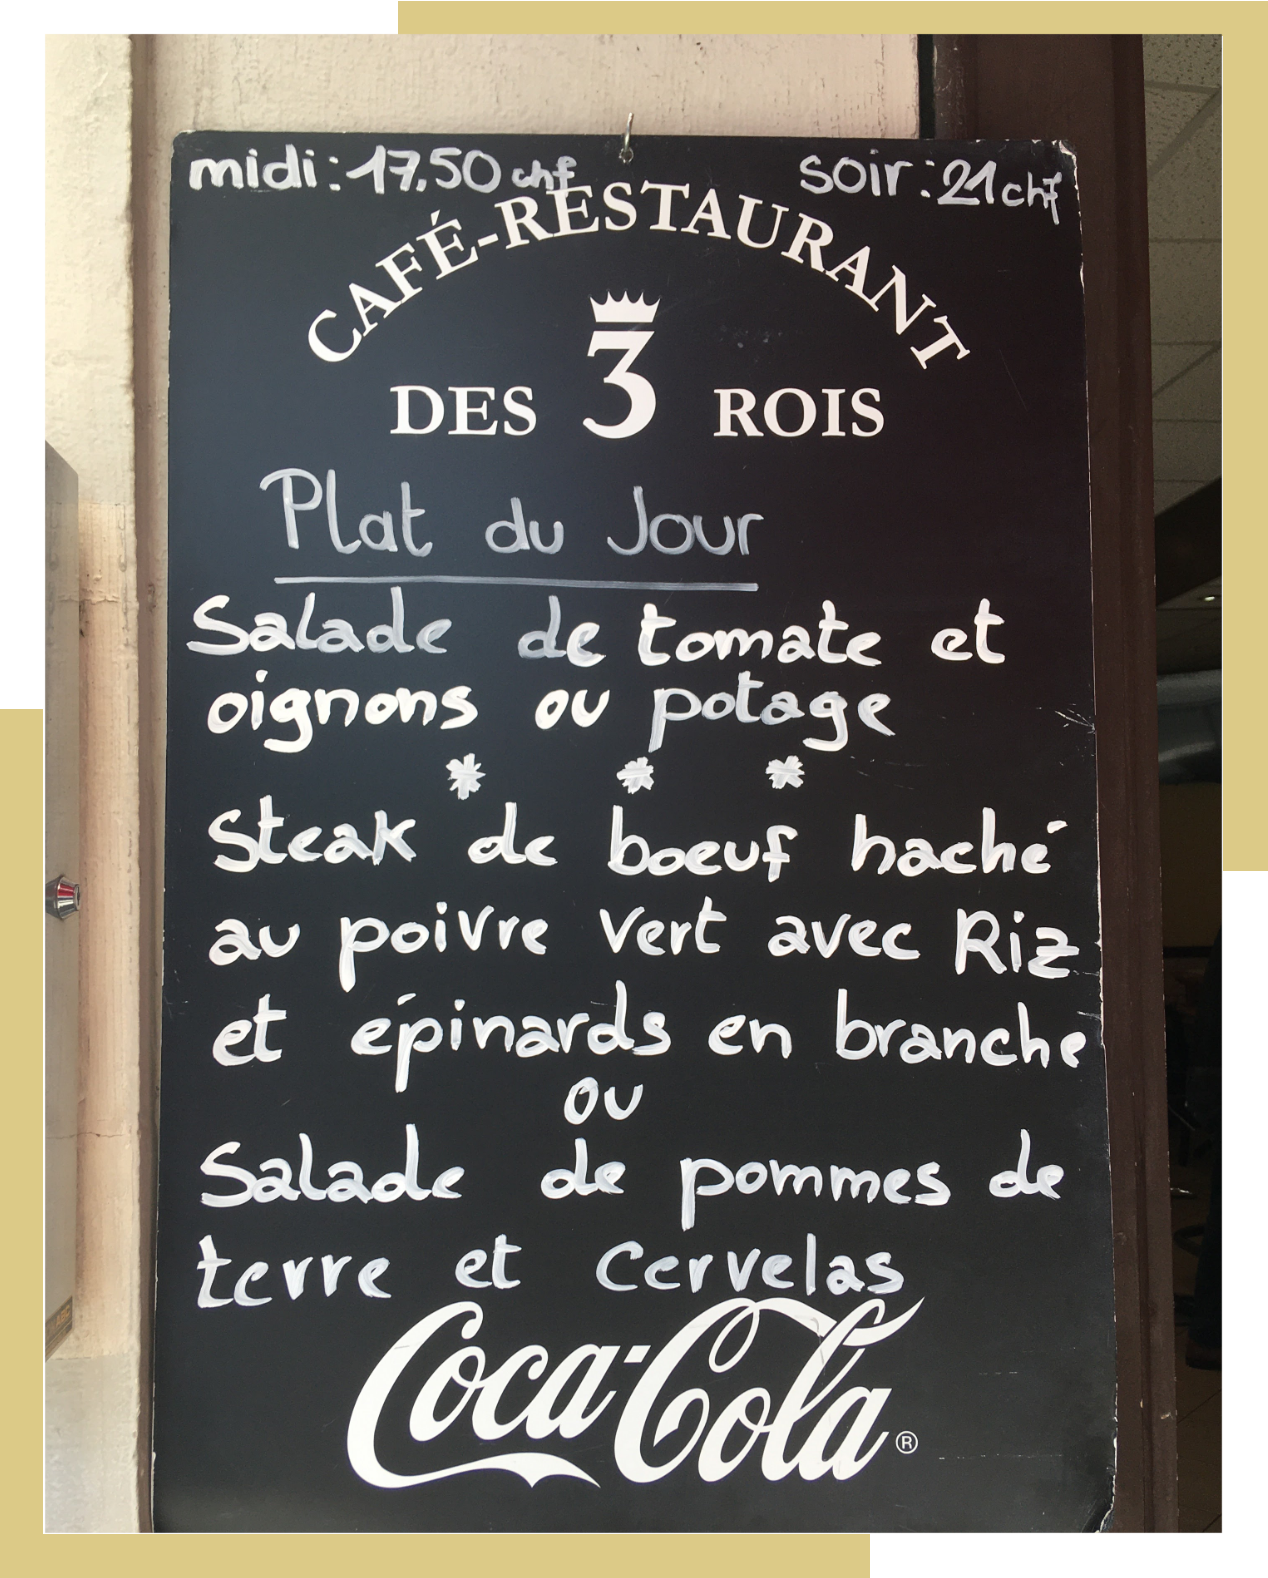 midi : 17.50 chf soir : 21 chf
CAFÉ-RESTAURANT
DES 3 ROIS
Plat du Jour
Salade de tomate et
oignons ou potage
* * *
Steak de boeuf haché
au poivre vert avec Riz
et épinards en branche
ou
Salade de pommes de
terre et Cervelas
Coca-Cola ®